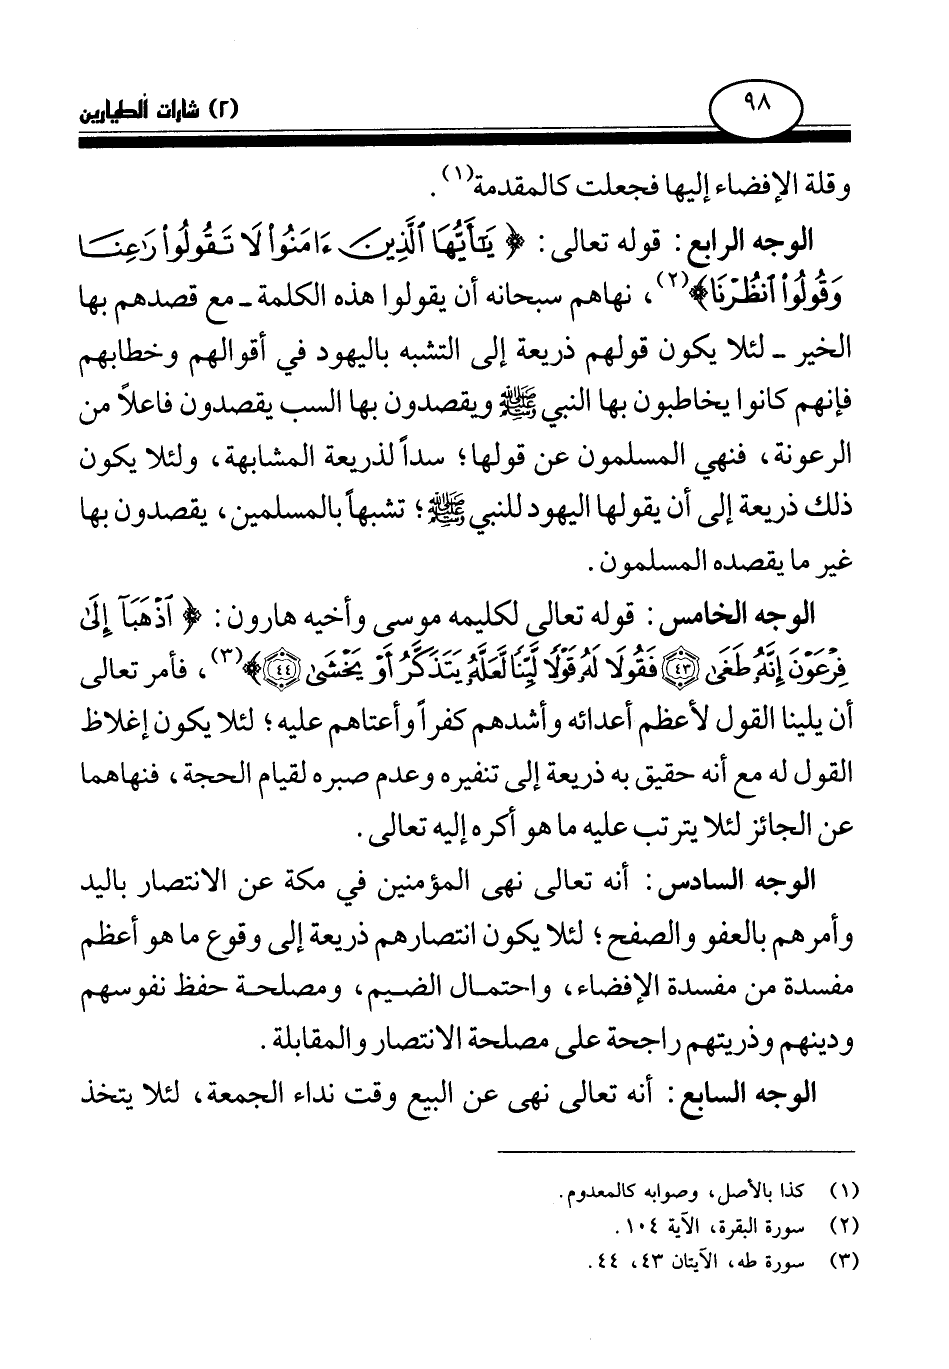 ٩٨
(٢) شارات الطيارين
وقلة الإفضاء إليها فجعلت كالمقدمة(١).
الوجه الرابع: قوله تعالى: ﴿ يَٰٓأَيُّهَا ٱلَّذِينَ ءَامَنُوا۟ لَا تَقُولُوا۟ رَٰعِنَا
وَقُولُوا۟ ٱنظُرْنَا﴾(٢)، نهاهم سبحانه أن يقولوا هذه الكلمة ـ مع قصدهم بها
الخير ـ لئلا يكون قولهم ذريعة إلى التشبه باليهود في أقوالهم وخطابهم
فإنهم كانوا يخاطبون بها النبي ﷺ ويقصدون بها السب يقصدون فاعلاً من
الرعونة، فنهي المسلمون عن قولها؛ سداً لذريعة المشابهة، ولئلا يكون
ذلك ذريعة إلى أن يقولها اليهود للنبي ﷺ؛ تشبهاً بالمسلمين، يقصدون بها
غير ما يقصده المسلمون.
الوجه الخامس: قوله تعالى لكليمه موسى وأخيه هارون: ﴿ ٱذْهَبَآ إِلَىٰ
فِرْعَوْنَ إِنَّهُۥ طَغَىٰ ﴿٤٣﴾ فَقُولَا لَهُۥ قَوْلًا لَّيِّنًا لَّعَلَّهُۥ يَتَذَكَّرُ أَوْ يَخْشَىٰ ﴿٤٤﴾﴾(٣)، فأمر تعالى
أن يلينا القول لأعظم أعدائه وأشدهم كفراً وأعتاهم عليه؛ لئلا يكون إغلاظ
القول له مع أنه حقيق به ذريعة إلى تنفيره وعدم صبره لقيام الحجة، فنهاهما
عن الجائز لئلا يترتب عليه ما هو أكره إليه تعالى.
الوجه السادس: أنه تعالى نهى المؤمنين في مكة عن الانتصار باليد
وأمرهم بالعفو والصفح؛ لئلا يكون انتصارهم ذريعة إلى وقوع ما هو أعظم
مفسدة من مفسدة الإفضاء، واحتمال الضيم، ومصلحة حفظ نفوسهم
ودينهم وذريتهم راجحة على مصلحة الانتصار والمقابلة.
الوجه السابع: أنه تعالى نهى عن البيع وقت نداء الجمعة، لئلا يتخذ
(١) كذا بالأصل، وصوابه كالمعدوم.
(٢) سورة البقرة، الآية ١٠٤.
(٣) سورة طه، الآيتان ٤٣، ٤٤.